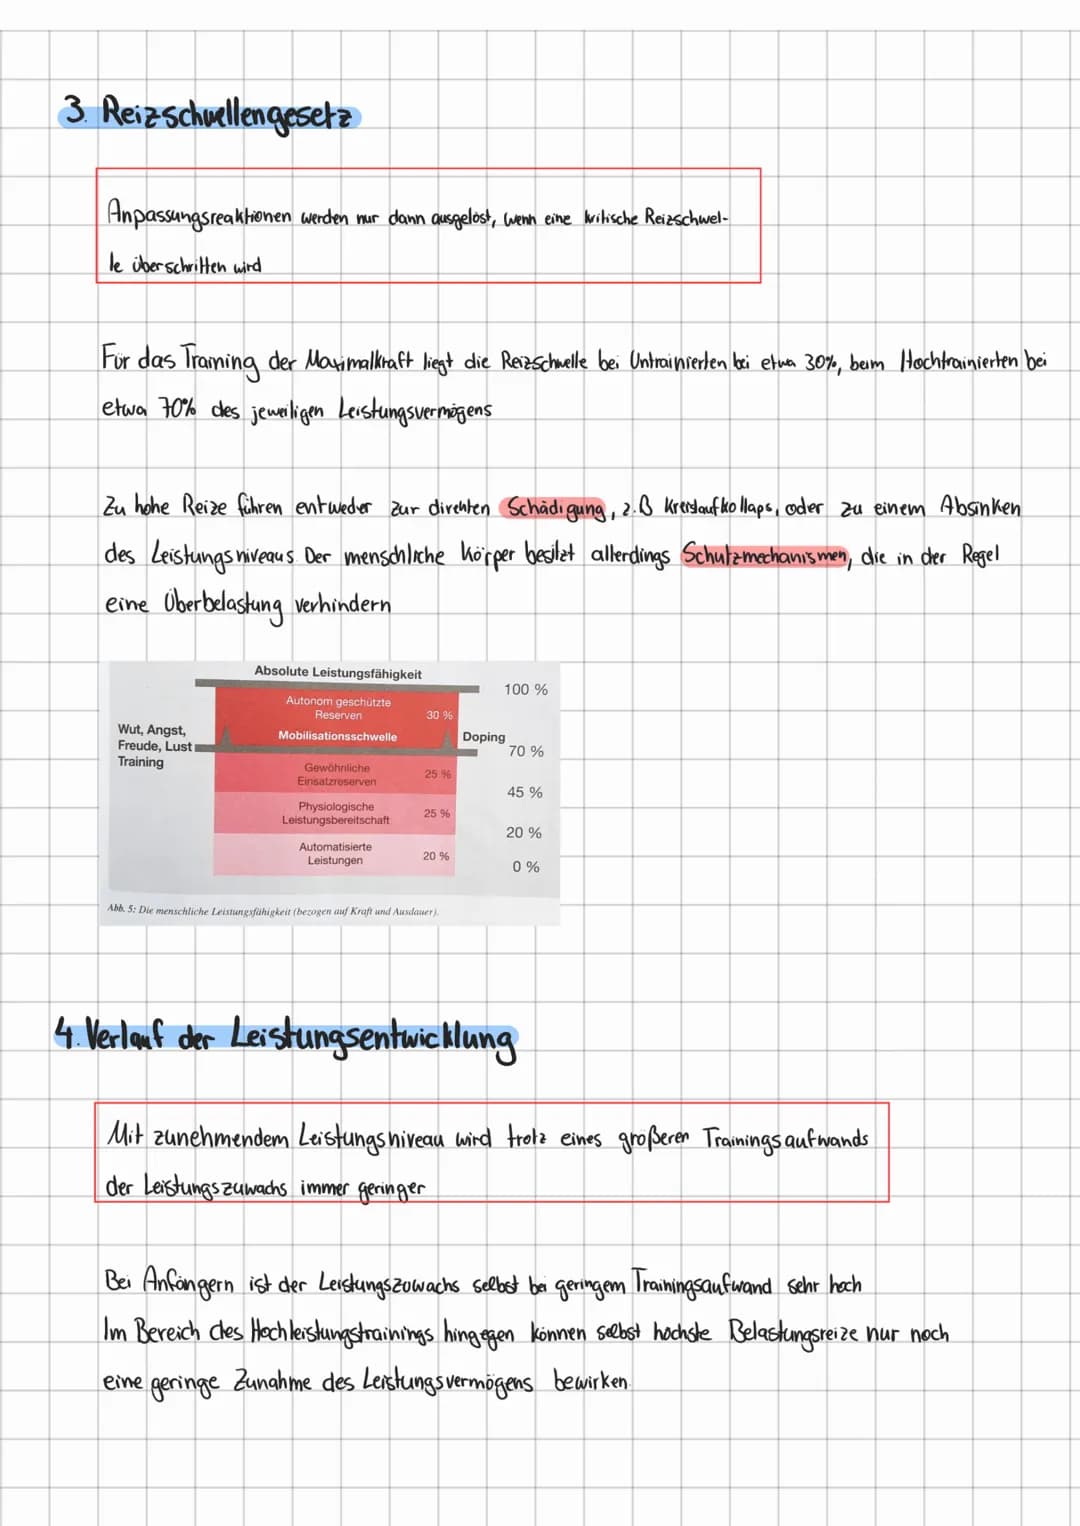 3. Reizschwellengesetz
Anpassungsreaktionen werden nur dann ausgelöst, wenn eine kritische Reizschwel-
le überschritten wird
Für das Training der Maximalkraft liegt die Reizschwelle bei Untrainierten bei etwa 30%, beim Hochtrainierten bei
etwa 70% des jeweiligen Leistungsvermögens
Zu hohe Reize führen entweder zur direkten Schädigung, z.B Kreislaufkollaps, oder zu einem Absinken
des Leistungsniveaus. Der menschliche Körper besitzt allerdings Schutzmechanismen, die in der Regel
eine Überbelastung verhindern
Absolute Leistungsfähigkeit
100 %
Autonom geschützte
Reserven 30 %
Wut, Angst,
Freude, Lust
Training
Mobilisationsschwelle
Doping
70 %
Gewöhnliche
Einsatzreserven 25 %
45 %
Physiologische
Leistungsbereitschaft 25 %
20 %
Automatisierte
Leistungen 20 %
0 %
Abb. 5: Die menschliche Leistungsfähigkeit (bezogen auf Kraft und Ausdauer).
4. Verlauf der Leistungsentwicklung
Mit zunehmendem Leistungsniveau wird trotz eines größeren Trainingsaufwands
der Leistungszuwachs immer geringer
Bei Anfängern ist der Leistungszuwachs selbst bei geringem Trainingsaufwand sehr hoch
Im Bereich des Hochleistungstrainings hingegen können selbst höchste Belastungsreize nur noch
eine geringe Zunahme des Leistungsvermögens bewirken.